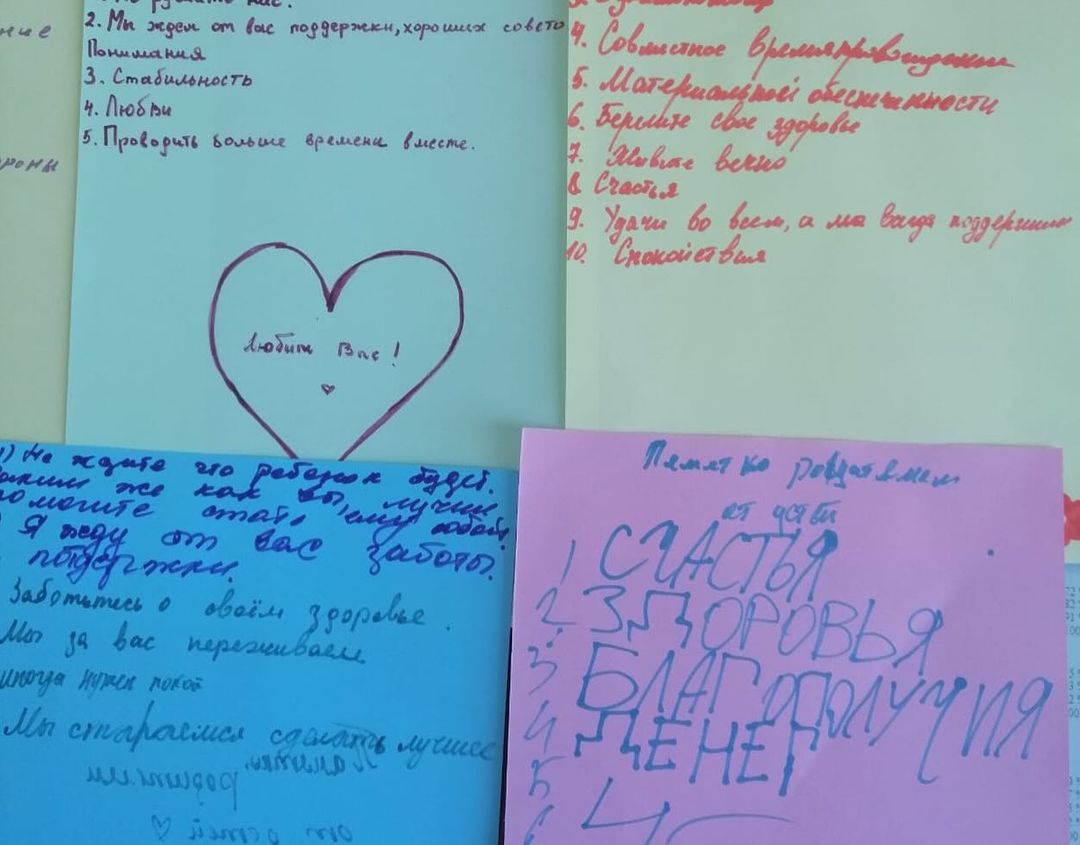 ние
роны
нас.
2. Мы ждем от вас поддержки, хороших совето
Понимания
3. Стабильность
4. Любви
5. Проводить больше времени вместе.
Любим Вас!
4. Совместное времяпровождении
5. Материальной обеспеченности
6. Берегите свое здоровье
7. Живите вечно
8. Счастья
9. Удачи во всем, а мы всегда поддержим
10. Спокойствия
1) Не ждите что ребенок будет
таким же как вы, лучше
помогите стать ему собой.
Я жду от вас заботы.
поддержки.
Заботьтесь о своём здоровье.
Мы за вас переживаем
иногда нужен покой
Мы стараемся сделать лучшее
Памятка
родителям
от детей
Памятка родителям
от детей
1 СЧАСТЬЯ
2. ЗДОРОВЬЯ
3 БЛАГОПОЛУЧИЯ
4 ДЕНЕГ
5
6